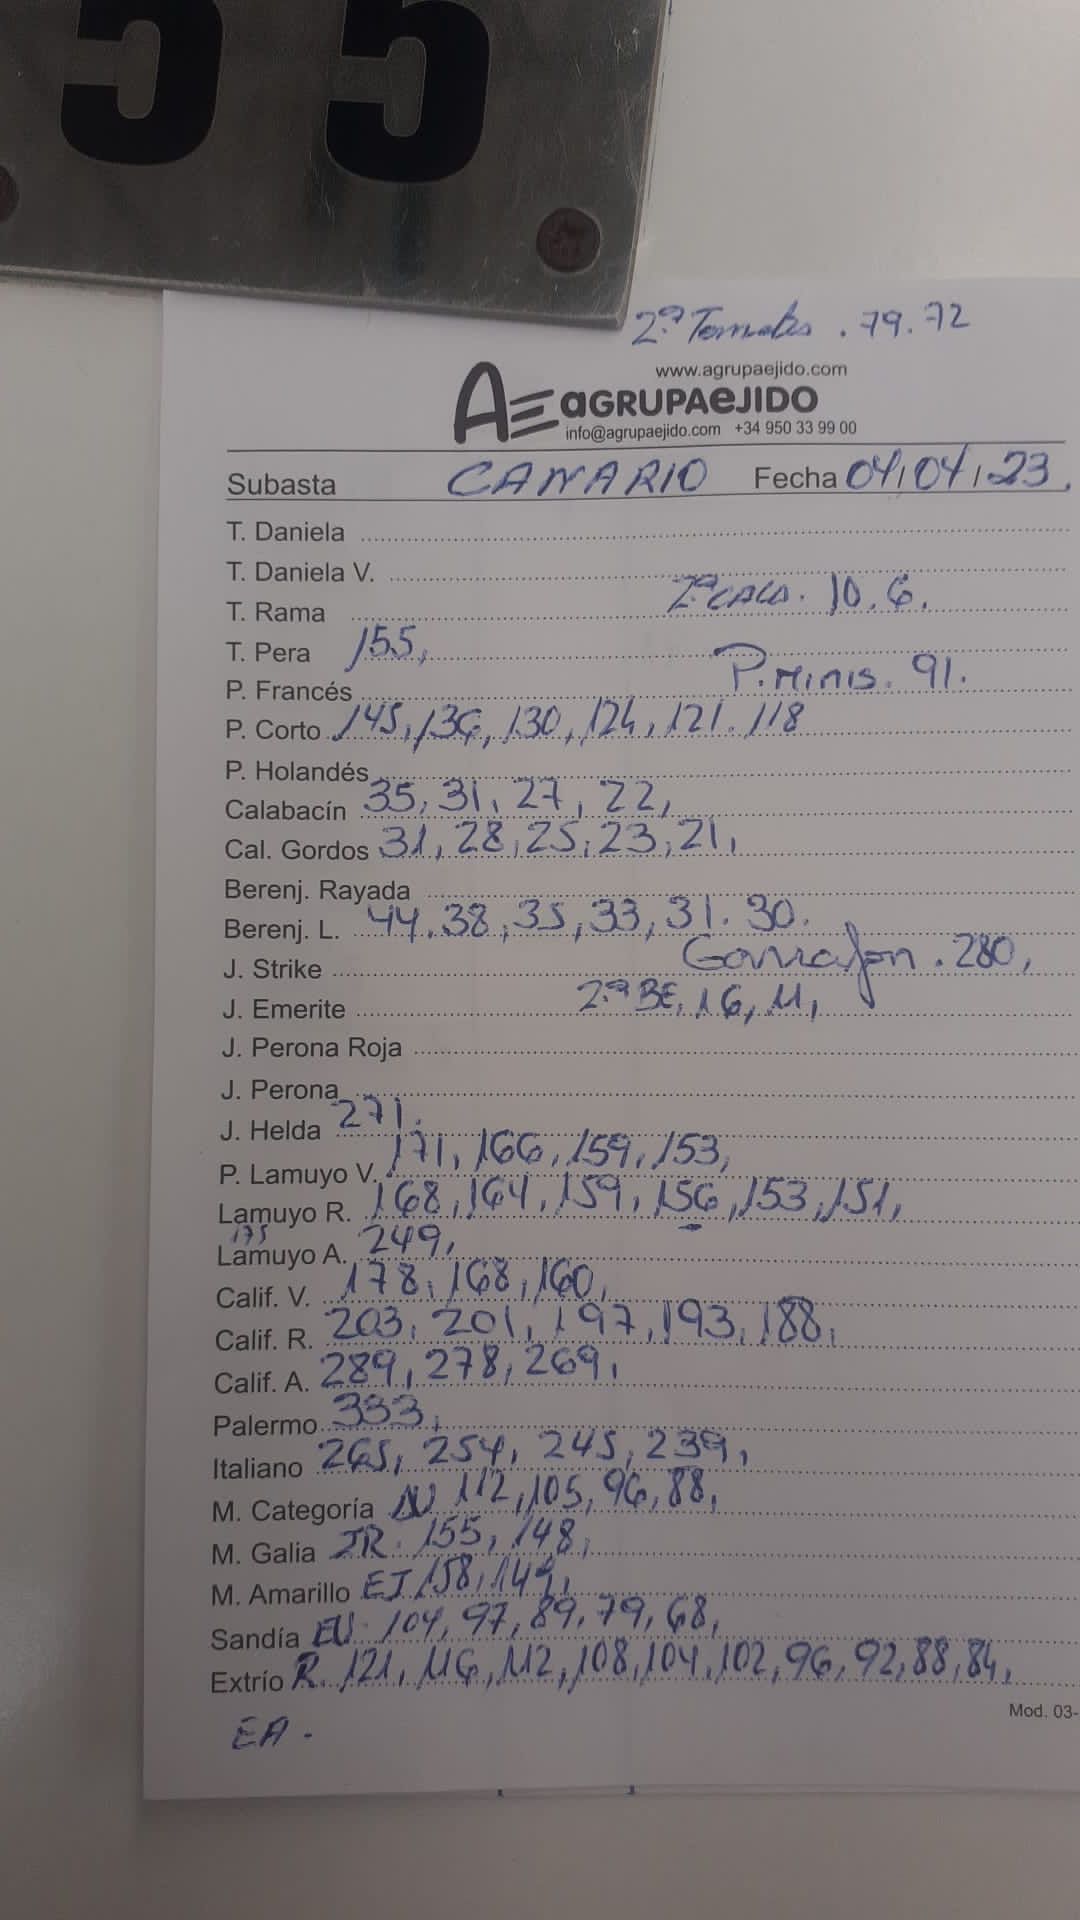 55
2ª Tomates . 79. 72
www.agrupaejido.com
AE aGRUPAeJIDO
info@agrupaejido.com +34 950 33 99 00
Subasta CANARIO Fecha 04/04/23,
T. Daniela
T. Daniela V.
T. Rama 2ª CALA. 10, 6,
T. Pera 155,
P. Francés P. Minis. 91.
P. Corto 145, 136, 130, 124, 121. 118
P. Holandés
Calabacín 35, 31, 27, 22,
Cal. Gordos 31, 28, 25, 23, 21,
Berenj. Rayada
Berenj. L. 44, 38, 35, 33, 31. 30.
J. Strike Garrafon . 280,
J. Emerite 2ª BE, 16, 11,
J. Perona Roja
J. Perona
J. Helda 271.
P. Lamuyo V. 171, 166, 159, 153,
Lamuyo R. 168, 164, 159, 156, 153, 151,
175
Lamuyo A. 249,
Calif. V. 178, 168, 160,
Calif. R. 203, 201, 197, 193, 188,
Calif. A. 289, 278, 269,
Palermo 333,
Italiano 265, 254, 245, 239,
M. Categoría 112, 105, 96, 88,
M. Galia IR. 155, 148,
M. Amarillo EI 158, 149,
Sandía EV 104, 97, 89, 79, 68,
Extrío R. 121, 116, 112, 108, 104, 102, 96, 92, 88, 84,
Mod. 03-
EA -